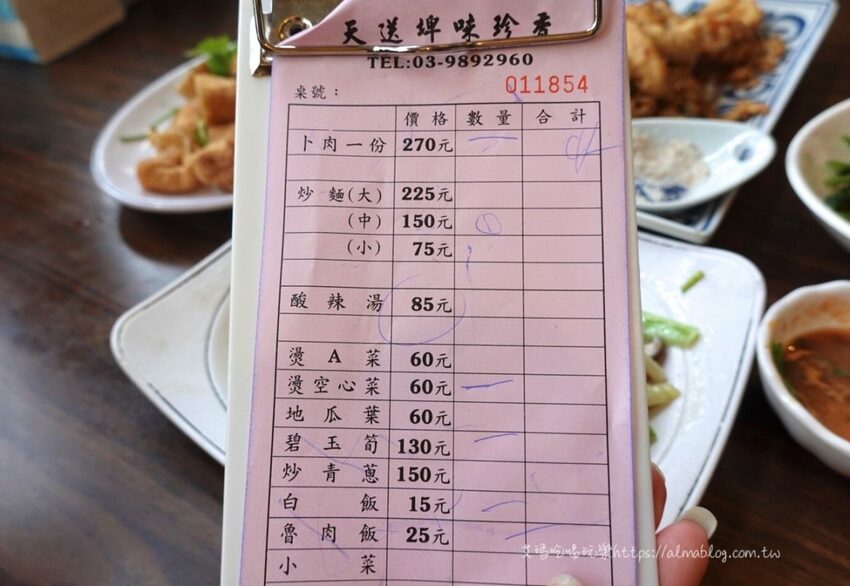 天送埤味珍香
TEL:03-9892960
桌號： 011854
價格 數量 合計
卜肉一份 270元 一
炒麵(大) 225元
(中) 150元 ①
(小) 75元
酸辣湯 85元
燙A菜 60元
燙空心菜 60元 一
地瓜葉 60元
碧玉筍 130元 一
炒青蔥 150元
白飯 15元 一
魯肉飯 25元 一
小菜
艾瑪吃喝玩樂https://almablog.com.tw